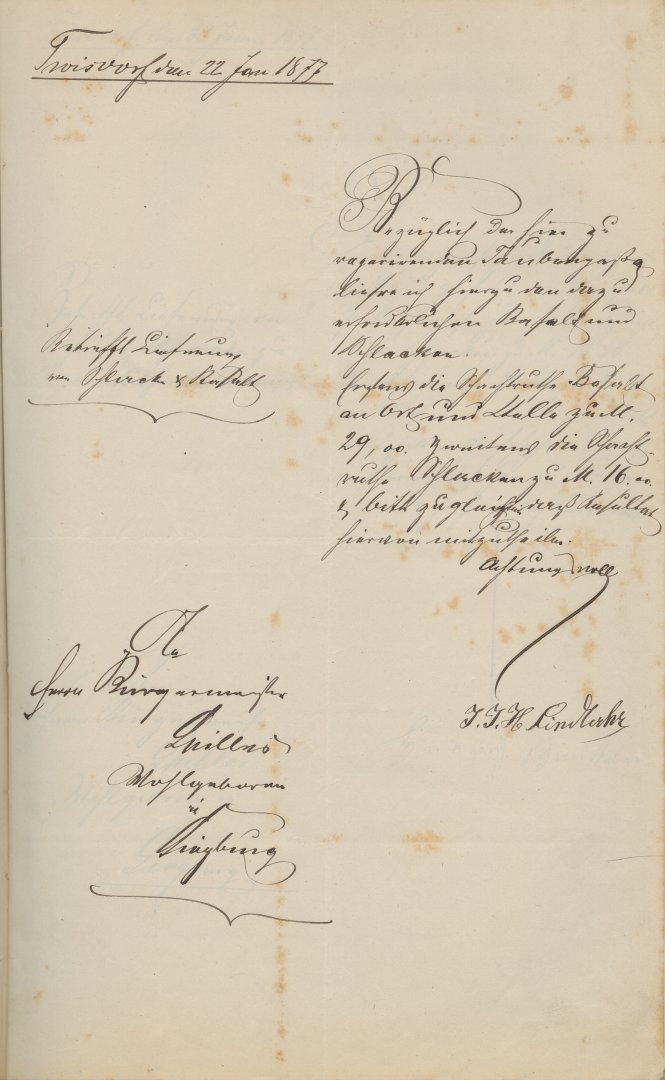 Troisdorf den 22 Jan 1877
Bezüglich der hier zu
reparirenden Taubengaße
liefre ich hierzu den dazu
erforderlichen Basalt und
Schlacken.
Betrifft Lieferung
von Schlack & Basalt
Erstens die Schachtruthe Basalt
an Ort und Stelle zu M.
29,00. Zweitens die Schacht-
ruthe Schlacken zu M. 16.00
& bitte zugleich das Resultat
hiervon mitzutheilen.
Achtungsvoll
J. J. H Lindlahr
An
Herrn Bürgermeister
Wohlgeboren
in
Siegburg